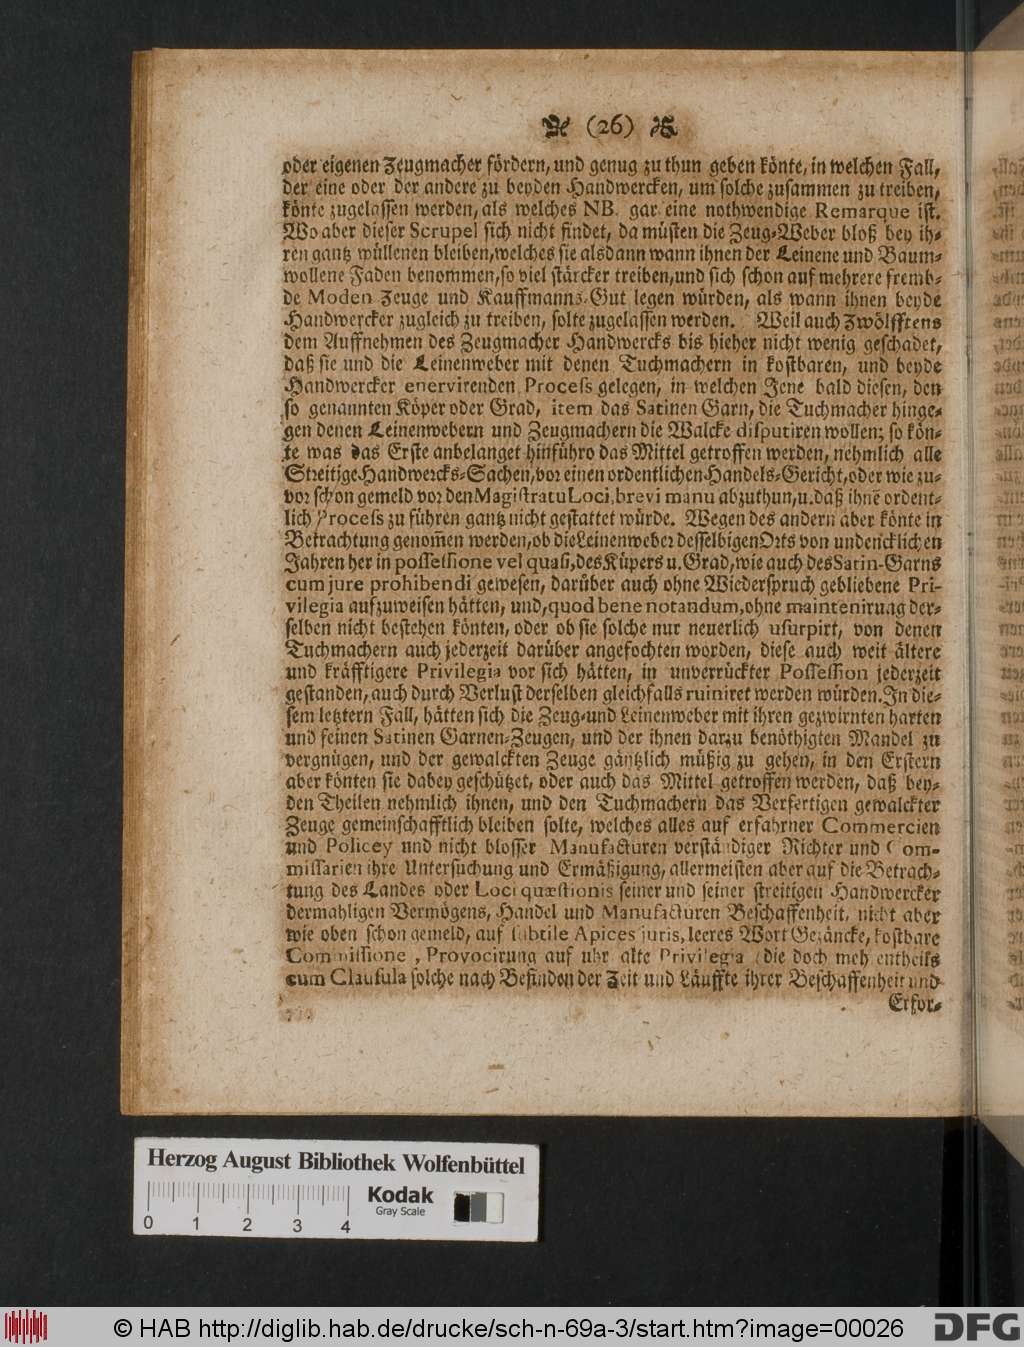 (26)
oder eigenen Zeugmacher fördern, und genug zu thun geben könte, in welchen Fall,
der eine oder der andere zu beyden Handwercken, um solche zusammen zu treiben,
könte zugelassen werden, als welches NB. gar eine nothwendige Remarque ist.
Wo aber dieser Scrupel sich nicht findet, da müsten die Zeug-Weber bloß bey ih-
ren gantz wüllenen bleiben, welches sie alsdann wann ihnen der Leinene und Baum-
wollene Faden benommen, so viel stärcker treiben, und sich schon auf mehrere fremb-
de Moden Zeuge und Kauffmanns-Gut legen würden, als wann ihnen beyde
Handwercker zugleich zu treiben, solte zugelassen werden. Weil auch Zwölfftens
dem Auffnehmen des Zeugmacher Handwercks bis hieher nicht wenig geschadet,
daß sie und die Leinenweber mit denen Tuchmachern in kostbaren, und beyde
Handwercker enervirenden Process gelegen, in welchen Jene bald diesen, den
so genannten Köper oder Grad, item das Satinen Garn, die Tuchmacher hinge-
gen denen Leinenwebern und Zeugmachern die Walcke disputiren wollen; so kön-
te was das Erste anbelanget hinführo das Mittel getroffen werden, nehmlich alle
Streitige Handwercks-Sachen, vor einen ordentlichen Handels-Gericht, oder wie zu-
vor schon gemeld vor den Magistratu Loci, brevi manu abzuthun, u. daß ihnē ordent-
lich Process zu führen gantz nicht gestattet würde. Wegen des andern aber könte in
Betrachtung genom̃en werden, ob die Leinenweber desselbigen Orts von undencklichen
Jahren her in possessione vel quasi, des Küpers u. Grad, wie auch des Satin-Garns
cum jure prohibendi gewesen, darüber auch ohne Wiederspruch gebliebene Pri-
vilegia aufzuweisen hätten, und, quod bene notandum, ohne maintenirung der-
selben nicht bestehen könten, oder ob sie solche nur neuerlich usurpirt, von denen
Tuchmachern auch jederzeit darüber angefochten worden, diese auch weit ältere
und kräfftigere Privilegia vor sich hätten, in unverrückter Possession jederzeit
gestanden, auch durch Verlust derselben gleichfalls ruiniret werden würden. In die-
sem letztern Fall, hätten sich die Zeug-und Leinenweber mit ihren gezwirnten harten
und feinen Satinen Garnen-Zeugen, und der ihnen darzu benöthigten Mandel zu
vergnügen, und der gewalckten Zeuge gäntzlich müßig zu gehen, in den Erstern
aber könten sie dabey geschützet, oder auch das Mittel getroffen werden, daß bey-
den Theilen nehmlich ihnen, und den Tuchmachern das Verfertigen gewalckter
Zeuge gemeinschafftlich bleiben solte, welches alles auf erfahrner Commercien
und Policey und nicht blosser Manufacturen verständiger Richter und Com-
missarien ihre Untersuchung und Ermäßigung, allermeisten aber auf die Betrach-
tung des Landes oder Loci quæstionis seiner und seiner streitigen Handwercker
dermahligen Vermögens, Handel und Manufacturen Beschaffenheit, nicht aber
wie oben schon gemeld, auf subtile Apices juris, leeres Wort Gezäncke, kostbare
Commissione, Provocirung auf uhr alte Privilegia (die doch mehrentheils
cum Clausula solche nach Befinden der Zeit und Läuffte ihrer Beschaffenheit und
Erfor-
Herzog August Bibliothek Wolfenbüttel
Kodak
Gray Scale
0 1 2 3 4
© HAB http://diglib.hab.de/drucke/sch-n-69a-3/start.htm?image=00026
DFG